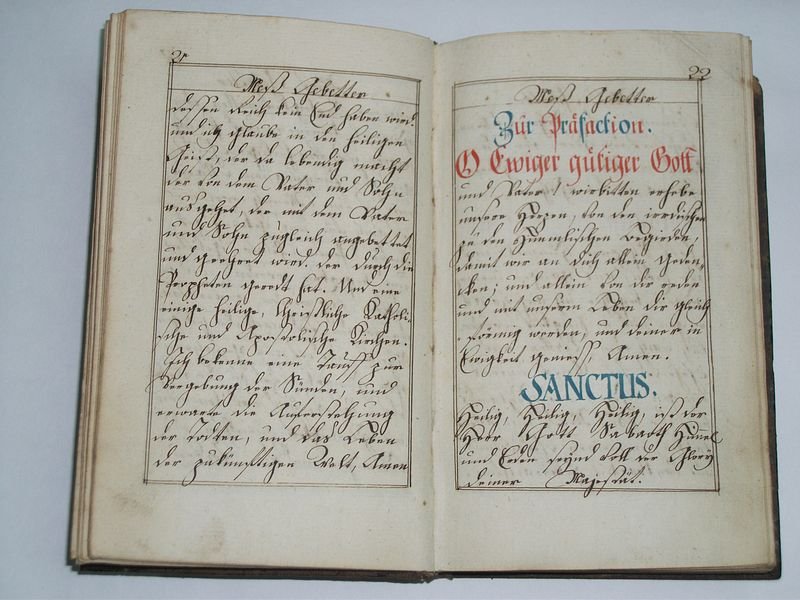 21
Meß Gebetter
dessen Reich kein End haben wird.
und ich glaube in den heiligen
Geist, der da lebendig macht
der von dem Vater und Sohn
ausgehet, der mit dem Vater
und Sohn zugleich angebettet
und geehret wird. der durch die
Propheten geredt hat. Und eine
einige heilige, Christliche Katholi-
sche und Apostolische Kirchen.
Ich bekenne eine Tauff zur
Vergebung der Sünden, und
erwarte die Auferstehung
der Todten, und das Leben
der zukünfftigen Welt, Amen
22
Meß Gebetter
Zür Präfaction.
O Ewiger gütiger Gott
und Vater! wir bitten erhebe
unsere Herzen, von den irrdischen
zu den Himmlischen Begierden,
damit wir an dich allein geden-
cken; und allein von dir reden
und mit unserm Leben dir gleich
förmig werden, und deiner in
Ewigkeit geniess, Amen.
SANCTUS.
Heilig, Heilig, Heilig, ist der
Herr Gott Sabaoth Himmel
und Erden seynd voll der Glory
deiner Majestät.